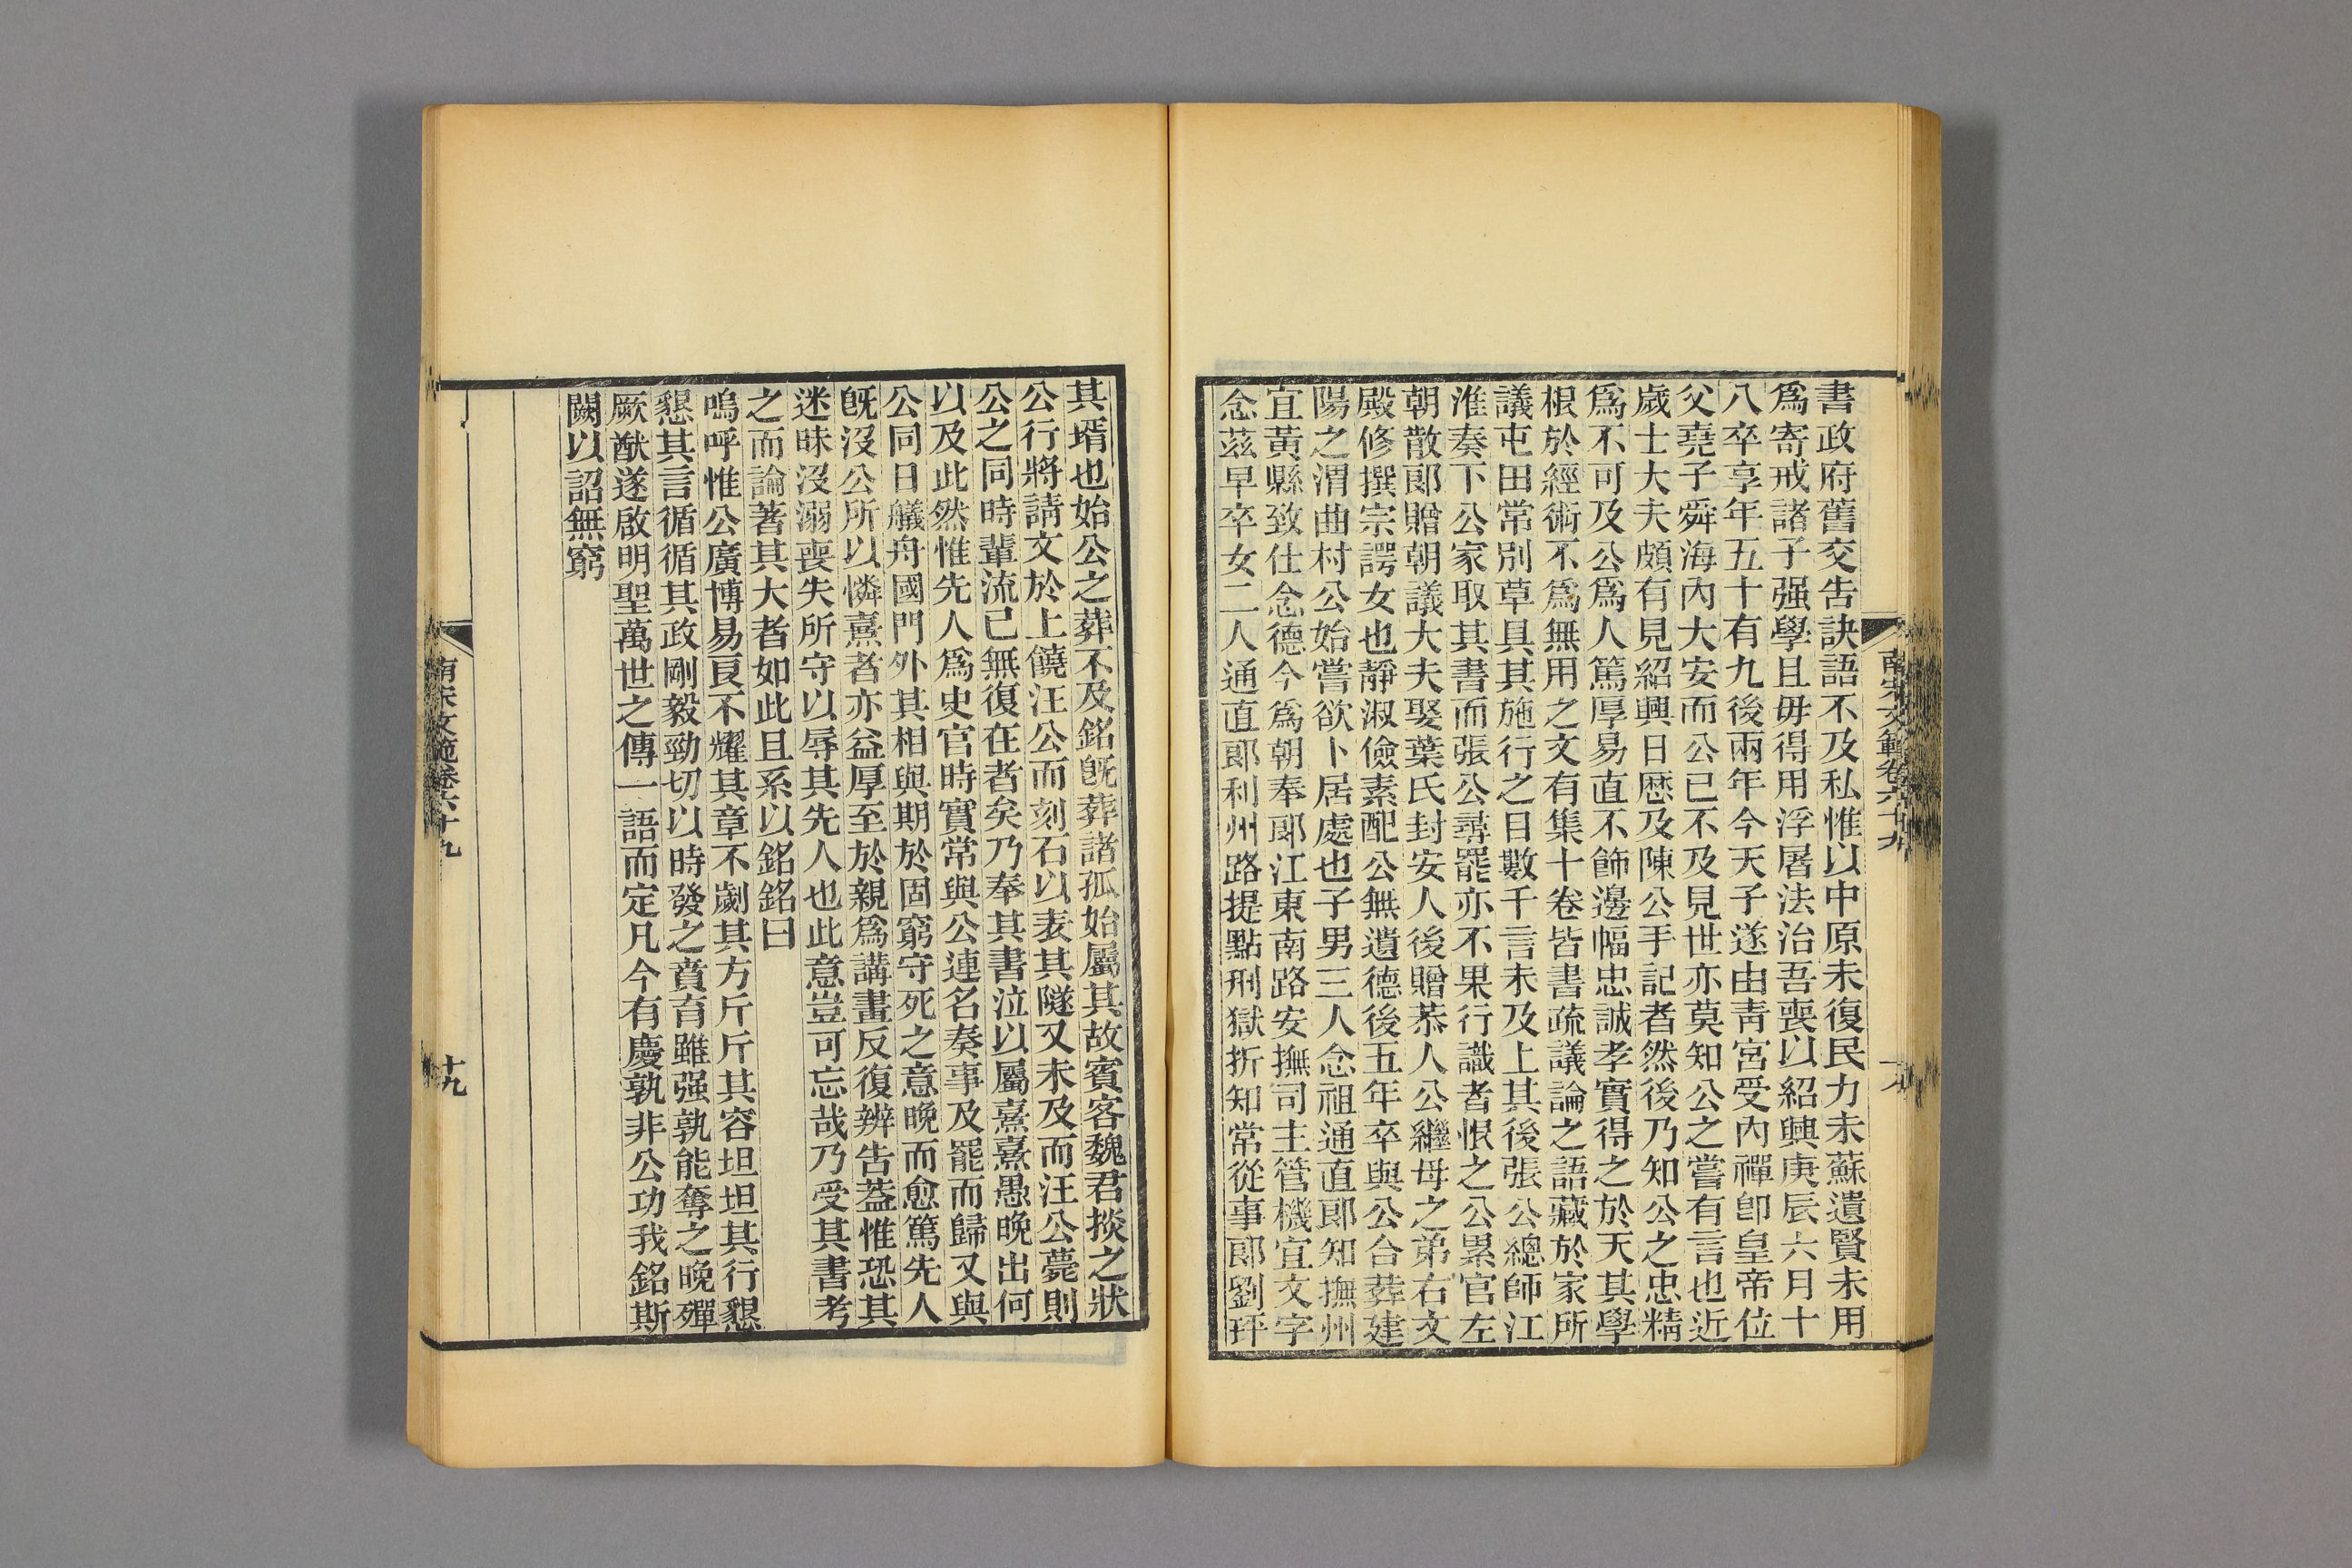 書政府舊交告訣語不及私惟以中原未復民力未蘇遺賢未用
爲寄戒諸子强學且毋得用浮屠法治吾喪以紹興庚辰六月十
八卒享年五十有九後兩年今天子遂由靑宮受內禪卽皇帝位
父堯子舜海內大安而公已不及見世亦莫知公之嘗有言也近
歲士大夫頗有見紹興日厯及陳公手記者然後乃知公之忠精
爲不可及公爲人篤厚易直不飾邊幅忠誠孝實得之於天其學
根於經術不爲無用之文有集十卷皆書疏議論之語藏於家所
議屯田常別草具其施行之目數千言未及上其後張公總師江
淮奏下公家取其書而張公尋罷亦不果行識者恨之公累官左
朝散郞贈朝議大夫娶葉氏封安人後贈恭人公繼母之弟右文
殿修撰宗諤女也靜淑儉素配公無遺德後五年卒與公合葬建
陽之渭曲村公始嘗欲卜居處也子男三人念祖通直郞知撫州
宜黃縣致仕念德今爲朝奉郞江東南路安撫司主管機宜文字
念茲早卒女二人通直郞利州路提點刑獄折知常從事郞劉玶
南宋文範卷六十九
其壻也始公之葬不及銘旣葬諸孤始屬其故賓客魏君掞之狀
公行將請文於上饒汪公而刻石以表其隧又未及而汪公薨則
公之同時輩流已無復在者矣乃奉其書泣以屬熹熹愚晚出何
以及此然惟先人爲史官時實常與公連名奏事及罷而歸又與
公同日艤舟國門外其相與期於固窮守死之意晚而愈篤先人
旣沒公所以憐熹者亦益厚至於親爲講畫反復辨告蓋惟恐其
迷昧沒溺喪失所守以辱其先人也此意豈可忘哉乃受其書考
之而論著其大者如此且系以銘銘曰
嗚呼惟公廣博易良不耀其章不劌其方斤斤其容坦坦其行懇
懇其言循循其政剛毅勁切以時發之賁育雖强孰能奪之晚殫
厥猷遂啟明聖萬世之傳一語而定凡今有慶孰非公功我銘斯
闕以詔無窮
南宋文範卷六十九
十九